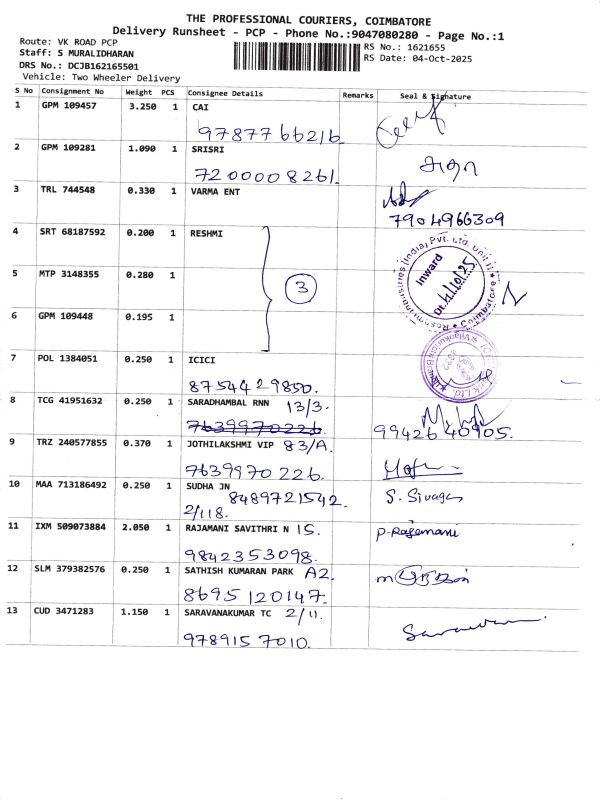 THE PROFESSIONAL COURIERS, COIMBATORE
Delivery Runsheet - PCP - Phone No.:9047080280 - Page No.:1
Route: VK ROAD PCP
Staff: S MURALIDHARAN
DRS No.: DCJB162165501
Vehicle: Two Wheeler Delivery
RS No.: 1621655
RS Date: 04-Oct-2025
S No Consignment No Weight PCS Consignee Details Remarks Seal & Signature
1 GPM 109457 3.250 1 CAI
9787766216.
2 GPM 109281 1.090 1 SRISRI
7200008261.
3 TRL 744548 0.330 1 VARMA ENT
7904966309
4 SRT 68187592 0.200 1 RESHMI
5 MTP 3148355 0.280 1
3
6 GPM 109448 0.195 1
Inward
7 POL 1384051 0.250 1 ICICI
8754429850.
8 TCG 41951632 0.250 1 SARADHAMBAL RNN 13/3.
7639970226 99426 40905.
9 TRZ 240577855 0.370 1 JOTHILAKSHMI VIP 83/A.
7639970226.
10 MAA 713186492 0.250 1 SUDHA JN
8489721542. S. Sivagas
2/118.
11 IXM 509073884 2.050 1 RAJAMANI SAVITHRI N 15.
P. Rajamani
9842353098.
12 SLM 379382576 0.250 1 SATHISH KUMARAN PARK A2.
8695120147.
13 CUD 3471283 1.150 1 SARAVANAKUMAR TC 2/11.
9789157010.